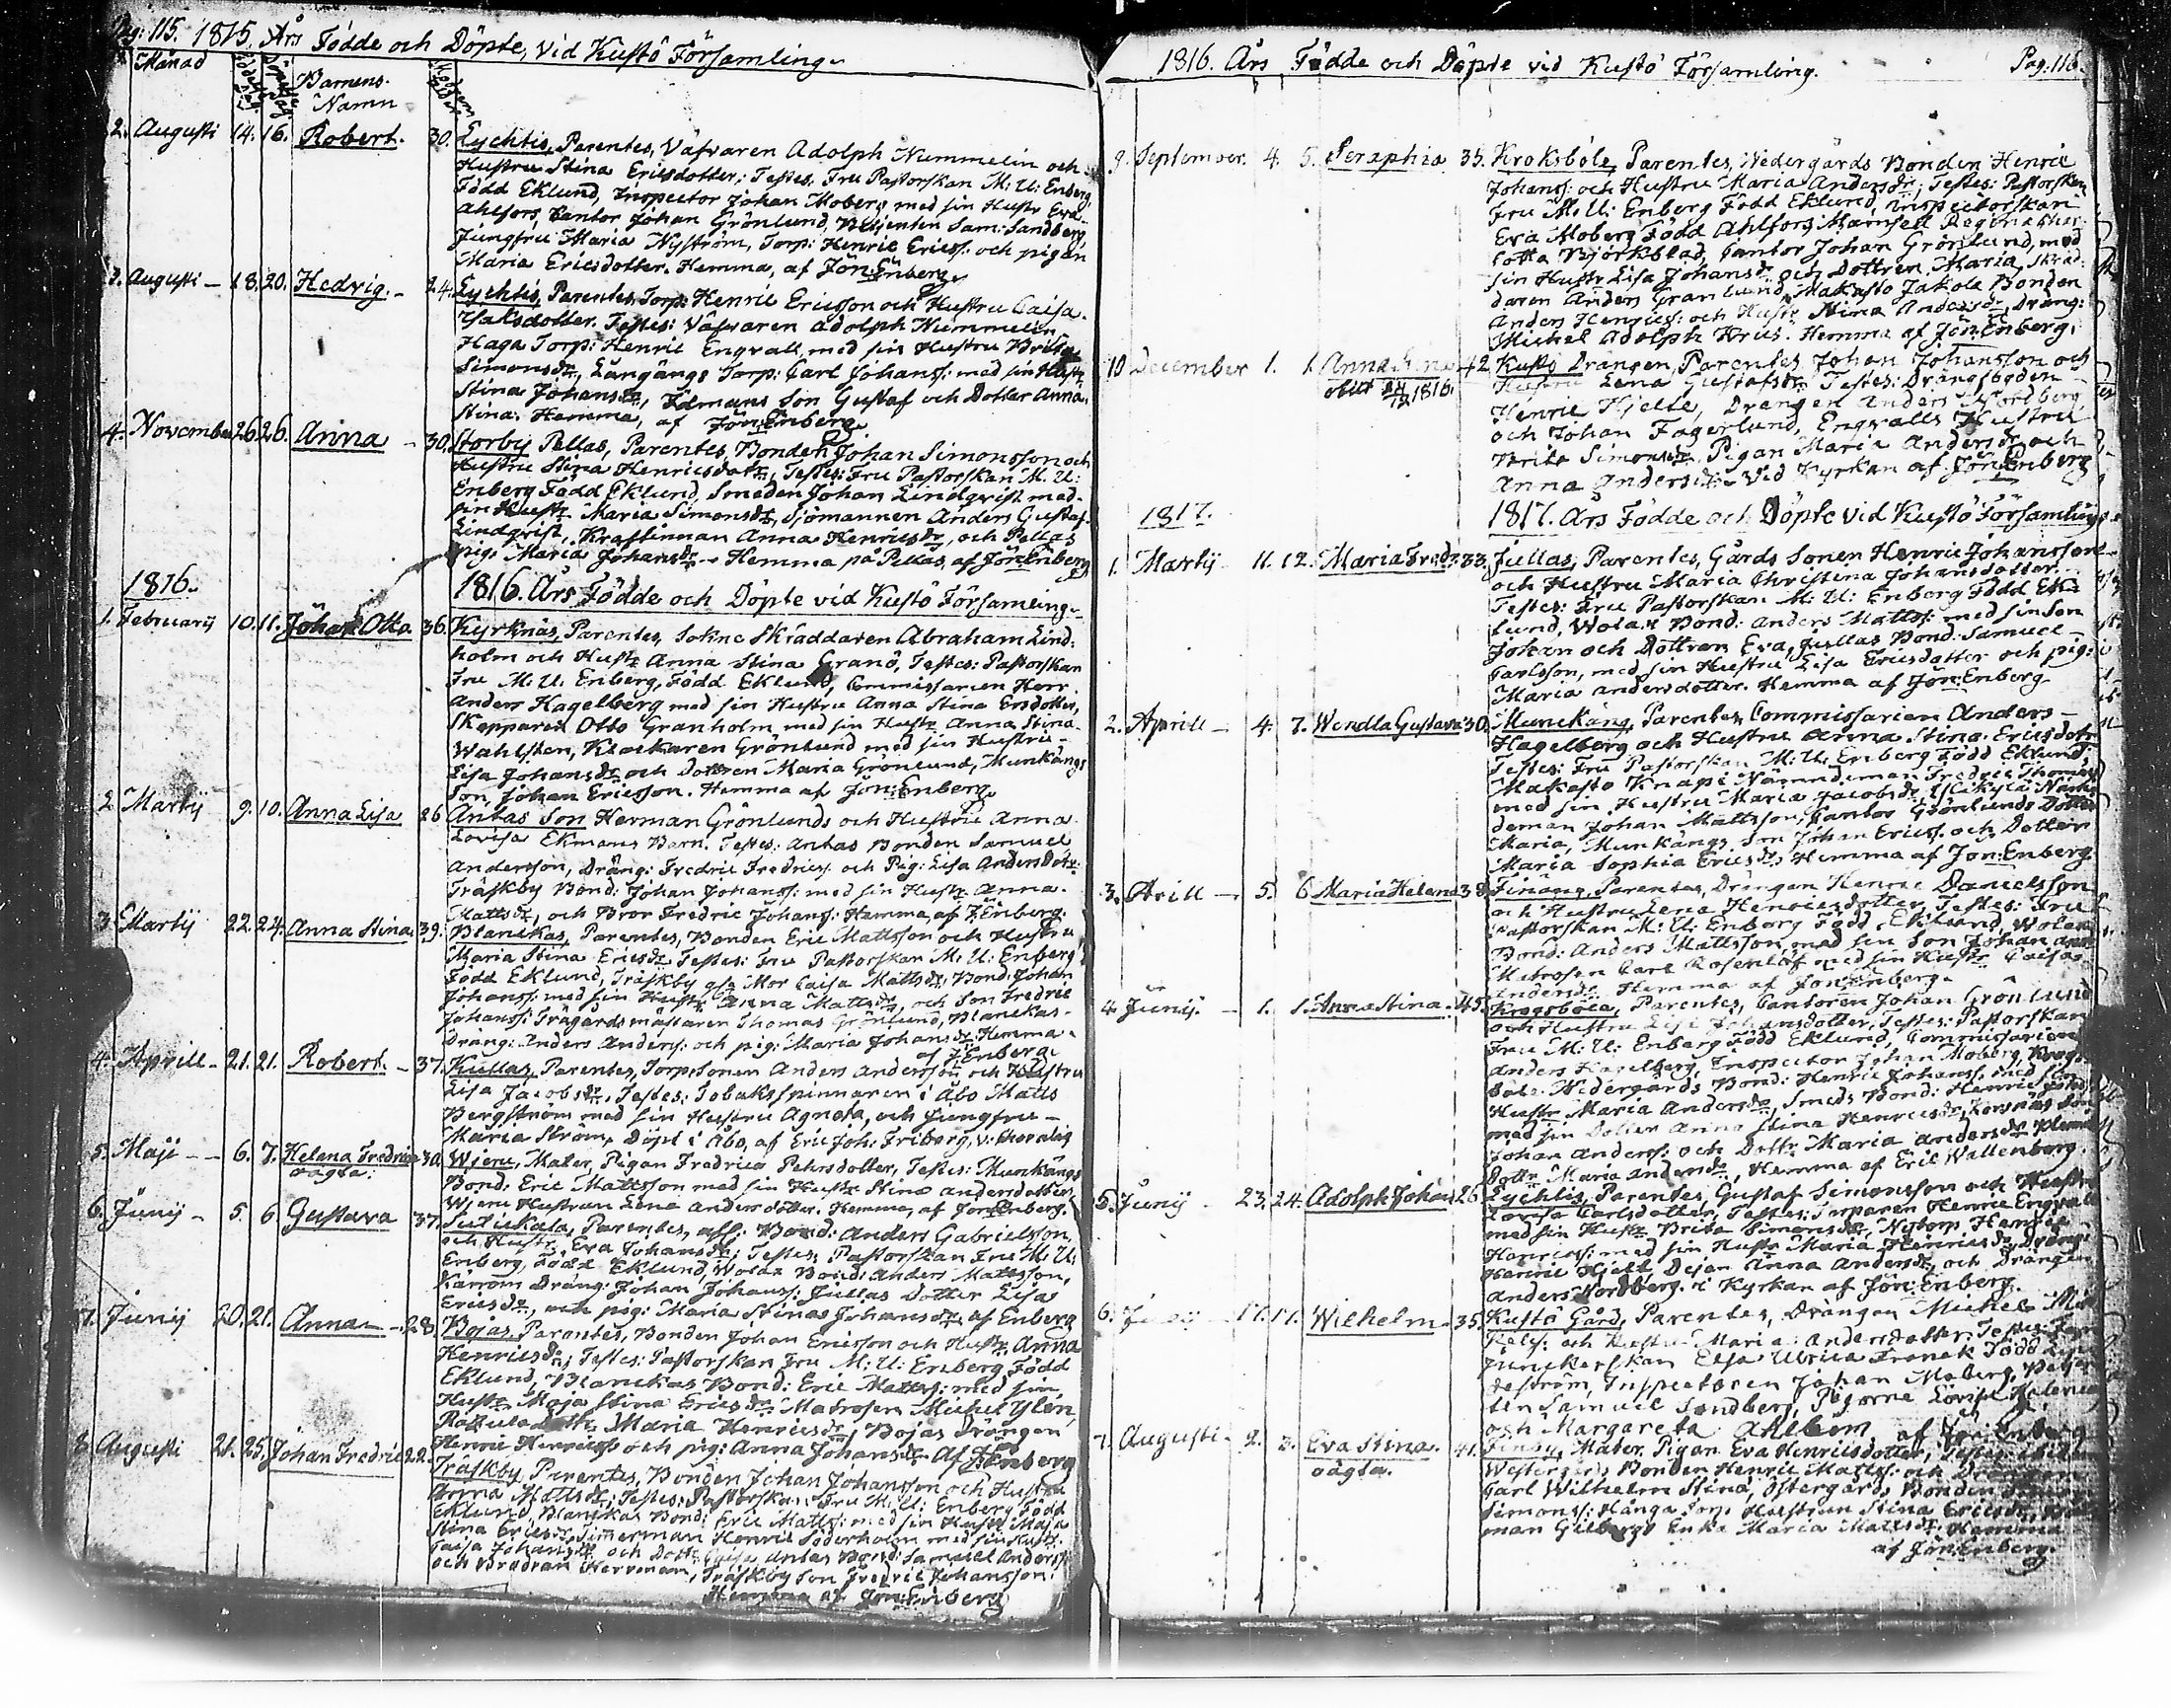 Pag: 115. 1815. Års Födde och Döpte, vid Kustö Församling.
Månad
Barnens
Namn
2. Augusti 14. 16. Robert. 30. Lychtis, Parentes, Väfvaren Adolph Nummelin och
Hustru Stina Ericsdotter; Testes, Fru Pastorskan M: U: Enberg
Född Eklund, Inspector Johan Moberg med sin Hustr Eva
Ahlfors, Cantor Johan Grönlund, Betjenten Sam: Sandberg
Jungfru Maria Nyström, Torp: Henric Ericss: och pigan
Maria Ericsdotter. Hemma, af Jon: Enberg
3. Augusti 18. 20. Hedvig. 24. Lychtis, Parentes, Torp: Henric Ericsson och Hustru Caisa
Isaksdotter. Testes: Väfvaren Adolph Nummelin
Haga Torp: Henric Engvall med sin Hustru Brita
Simonsdr, Långängs Torp: Carl Johanss: med sin Hustr
Stina Johansdr, Edmans Son Gustaf och Dotter Anna
Stina. Hemma, af Jon: Enberg
4. November 26. 26. Anna 30. Storby Pellas, Parentes, Bonden Johan Simonsson och
Hustru Stina Henricsdotr, Testes: Fru Pastorskan M. U:
Enberg Född Eklund, Smeden Johan Lindqvist med
sin Hustr Maria Simonsdr, Sjömannen Anders Gustaf
Lindqvist, Anna Henricsdr, och Pellas
pig: Maria Johansdr. Hemma på Pellas, af Jon: Enberg
1816. 1816. Års Födde och Döpte vid Kustö Församling.
1. Februarij 10. 11. Johan Otto 36. Kyrknäs, Parentes, Sokne Skräddaren Abraham Lind:
holm och Hustr Anna Stina Granö, Testes: Pastorskan
Fru M: U: Enberg, Född Eklund, Commissarien Herr
Anders Hagelberg med sin Hustru Anna Stina Ersdotter,
Skepparen Otto Granholm med sin Hustr Anna Stina
Wahlsten, Klockaren Grönlund med sin Hustru
Lisa Johansdr och Dottren Maria Grönlund, Munkängs
Son, Johan Ericsson. Hemma af Jon: Enberg
2. Martij 9. 10. Anna Lisa 26 Antas Son Herman Grönlunds och Hustru Anna
Lovisa Ekmans Barn. Testes: Antas Bonden Samuel
Andersson, Dräng: Fredric Fredrics: och Pig: Lisa Anders Dotr
Träskby Bond: Johan Johanss: med sin Hustr Anna
Mattsdr, och Bror Fredric Johanss: Hemma, af J: Enberg.
3 Martij 22. 24. Anna Stina. 39. Blanckas, Parentes, Bonden Eric Mattsson och Hustru
Maria Stina Ericsdr Testes: Fru Pastorskan M. U: Enberg
Född Eklund, Träskby gla Mor Caisa Mattsdr, Bond: Johan
Johanss: med sin Hustr Anna Mattsdr, och Son Fredric
Johanss: Trägårdsmästaren Thomas Grönlund, Blanckas
Dräng: Anders Anderss: och pig: Maria Johansdr Hemma
af J: Enberg.
4. Aprill 21. 21. Robert. 37. Kullas, Parentes, Torpsonen Anders Andersson och Hustru
Lisa Jacobsdr, Testes: Tobaksspinnaren i Åbo Matts
Bergström med sin Hustru Agneta, och Jungfru
Maria Ström, Döpt i Åbo, af Eric Joh: Friberg,
5. Maji 6. 7. Helena Fredrica 30. Wjeru, Mater, Pigan Fredrica Pehrsdotter, Testes: Munckängs
oägta: Bond: Eric Mattsson med sin Hustr Stina Andersdotter,
Wjeru Hustrun Lena Andersdotter. Hemma, af Jon: Enberg.
6. Junij 5. 6. Gustava 37. Parentes, Bond: Anders Gabrielsson
och Hustr Eva Johansdr; Testes, Pastorskan Fru M: U:
Enberg, Född Eklund, Wolax Bond: Anders Mattsson,
Dräng: Johan Johanss: Jullas Dotter Lisa
Ericsdr, och pig: Maria Stina Johansdr, af Enberg
7. Junij 20. 21. Anna 28. Bojas, Parentes, Bonden Johan Ericsson och Hustr Anna
Henricsdr; Testes: Pastorskan Fru M: U: Enberg Född
Eklund, Blanckas Bond: Eric Matts: med sin
Hustr Maja Stina Ericsdr, Matrosen Michel Ylén,
Maria Henricsdr, Bojas Drängen
Henric Henricss och pig: Anna Johansdr. Af J: Enberg
8. Augusti 21. 25. Johan Fredric 22. Träskby, Parentes, Bonden Johan Johansson och Hustru
Anna Mattsdr; Testes: Pastorskan Fru M: U: Enberg Född
Eklund, Blanckas Bond: Eric Matts: med sin Hustr Maja
Stina Ericsdr, Timerman Henric Söderholm med sin Hustr:
Caisa Johansdr och Dottr Caisa, Antas Bond: Samuel Anderss:
och Brodren Herrman, Träskby Son Fredric Johansson
Hemma af Jon: Enberg
1816. Års Födde och Döpte vid Kustö Församling. Pag. 116.
9. September. 4. 5. Seraphia 35. Kroksböle, Parentes, Nedergårds Bonden Henric
Johanss: och Hustru Maria Andersdr; Testes: Pastorskan
Fru M: U: Enberg Född Eklund, Inspectorskan
Eva Moberg Född Ahlfors, Mamsell Regina Char
lotta Björkblad, Cantor Johan Grönlund, med
sin Hustr Lisa Johansdr och Dottren Maria, Skräd:
daren Anders Granlund, Makasto Jakola Bonden
Anders Henricss: och Hustr Stina Andersdr, Dräng:
Michel Adolph Hemma af Jon: Enberg.
10 December 1. 1. Anna 42 Kustö Drängen, Parentes Johan Johansson och
obiit 1816. Hustru Lena Gustafsdr Testes: Drängsbonden
Henric Hjelte, Drängen Anders Nordberg
och Johan Fagerlund, Engvalls Hustru
Brita Simonsdr, Pigan Maria Andersdr och
Anna Andersdr. Vid Kyrkan af Jon: Enberg
1817. 1817. Års Födde och Döpte vid Kustö Församling
1. Martij 11. 12. Maria Fred: 33. Jullas, Parentes, Gårds Sonen Henric Johansson
och Hustru Maria Christina Johansdotter
Testes: Fru Pastorskan M: U: Enberg Född Ek
lund, Wolax Bond: Anders Mattss: med sin Son
Johan och Dottren Eva, Jullas Bond: Samuel
Carlsson, med sin Hustru Lisa Ericsdotter och pig:
Maria Andersdotter. Hemma af Jon: Enberg
2. Aprill 4. 7. Wendla Gustava 30. Munckäng, Parentes, Commissarien Anders
Hagelberg och Hustru Anna Stina Ericsdotr
Testes: Fru Pastorskan M: U: Enberg Född Eklund,
Makasto Knapi Nämndeman Fredric
med sin Hustru Maria Jacobsdr,
deman Johan Mattsson, Cantor Grönlunds Dotter
Maria, Munkängs Son Johan Ericss: och Dotter
Maria Sophia Ericsdr, Hemma af Jon: Enberg
3. Arill 5. 6 Maria Helena 38. Parentes, Drängen Henric Danielsson
och Hustru Lena Henricsdotter, Testes: Fru
Pastorskan M: U: Enberg Född Eklund, Wolax
Bond: Anders Mattsson med sin Son Johan
Matrosen Carl Rosenlöf med sin Hustr Caisa
Andersdr Hemma af Jon: Enberg.
4. Junij 1. 1. Anna Stina. 45. Krogsböle, Parentes, Cantoren Johan Grönlund
och Hustru Lisa Johansdotter, Testes: Pastorskan
Fru M: U: Enberg Född Eklund, Commissarien
Anders Hagelberg, Inspector Johan Moberg, Krogs
böle Nedergårds Bond: Henric Johanss. med sin
Hustr Maria Andersdr, Smeds Bond: Henric
med sin Dotter Anna Stina Henricsdr, Son
Johan Anderss: och Dottr Maria Andersdr
Dottr Maria Andersdr, Hemma af Eric Wallenberg.
5. Junij 23. 24. Adolph Johan 26 Lychtis, Parentes, Gustaf Simonsson och Hustru
Lovisa Carlsdotter, Testes: Torparen Henric Engvall
med sin Hustr Brita Simonsdr, Nytorp
Henricss: med sin Hustr Maria Henricsdr, Dräng:
Henric Hjelt, Dejan Anna Andersdr, och Drängen
Anders Nordberg. i Kyrkan af Jon: Enberg.
6. 17. 17. Wilhelm 35. Kustö Gård, Parentes, Drängen Michel
och Hustru Maria Andersdotter. Testes:
Junckerskan Elsa Ulrica Franck Född
deström, Inspectoren Johan Moberg, Betjen
ten Samuel Sandberg, Pigorne Lovisa Helenius
och Margareta Ahlbom. af Jon: Enberg
7. Augusti 2. 3. Eva Stina. 41. Mater, Pigan Eva Henricsdotter, Testes:
oägta. Westergårds Bonden Henric Mattss: och Drängen
Carl Wilhelm Stina, Östergårds Bonden
Simonss: Hånga Torp. Hustrun Stina Ericsdr,
man Gilbergs Enka Maria Mattsdr. Hemma
af Jon: Enberg.